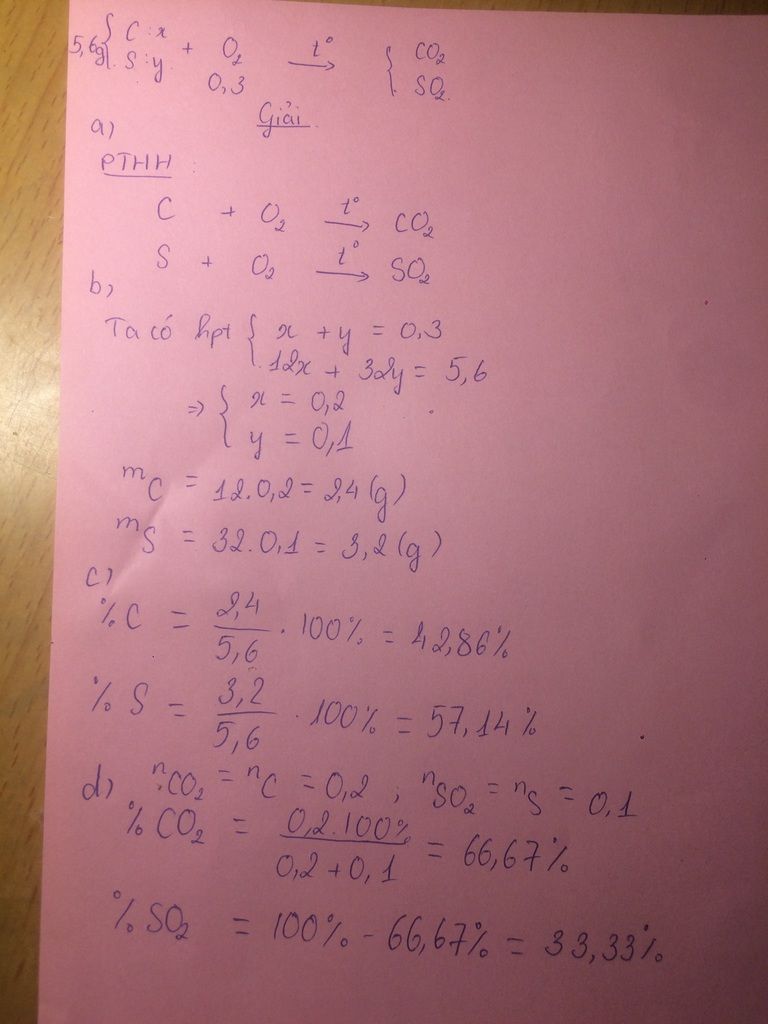 5,6g { C : x + O₂ t° → { CO₂
S : y 0,3 SO₂
Giải
a)
PTHH :
C + O₂ t° → CO₂
S + O₂ t° → SO₂
b)
Ta có hpt { x + y = 0,3
12x + 32y = 5,6
⇒ { x = 0,2
y = 0,1
mC = 12.0,2 = 2,4 (g)
mS = 32.0,1 = 3,2 (g)
c)
%C = 2,4/5,6 . 100% = 42,86%
%S = 3,2/5,6 . 100% = 57,14%
d) nCO₂ = nC = 0,2 ; nSO₂ = nS = 0,1
%CO₂ = 0,2.100%/0,2+0,1 = 66,67%
%SO₂ = 100% - 66,67% = 33,33%